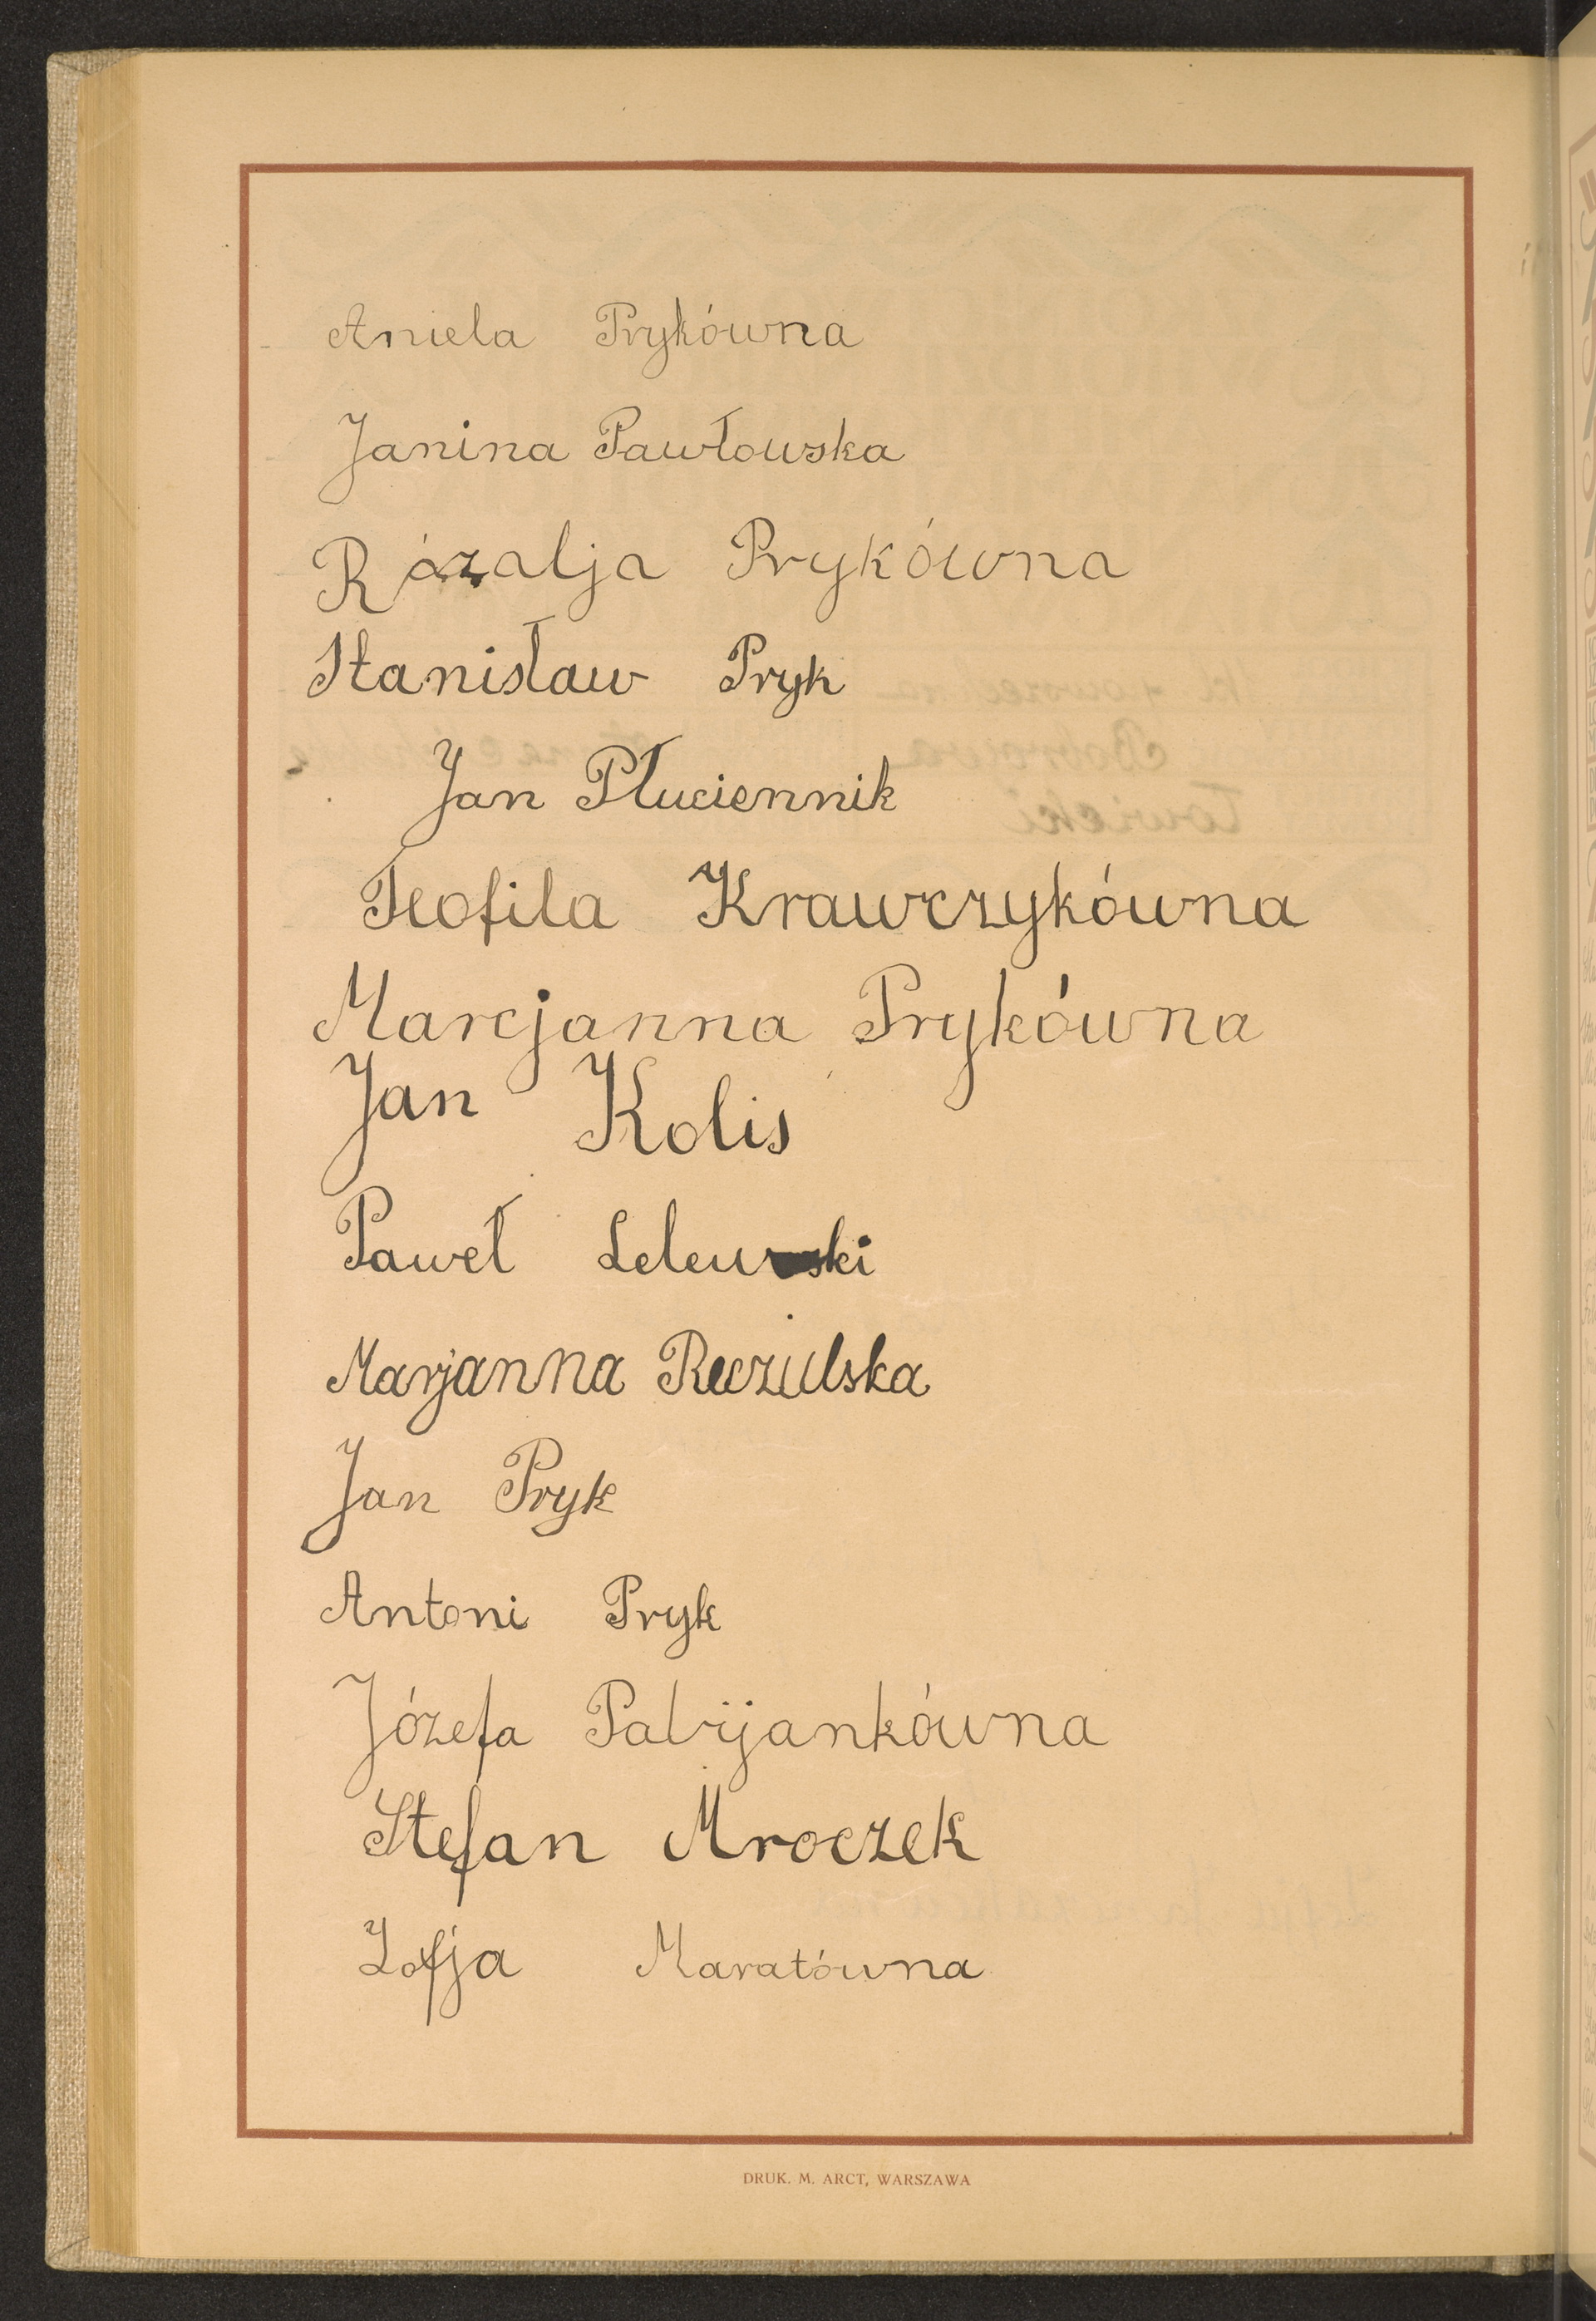 Aniela Prykówna
Janina Pawłowska
Rózalja Prykówna
Stanisław Pryk
Jan Płuciennik
Teofila Krawczykówna
Marcjanna Prykówna
Jan Kolis
Paweł Lelewski
Marjanna Reczulska
Jan Pryk
Antoni Pryk
Józefa Pabijankówna
Stefan Mroczek
Zofja Maratówna
DRUK. M. ARCT, WARSZAWA